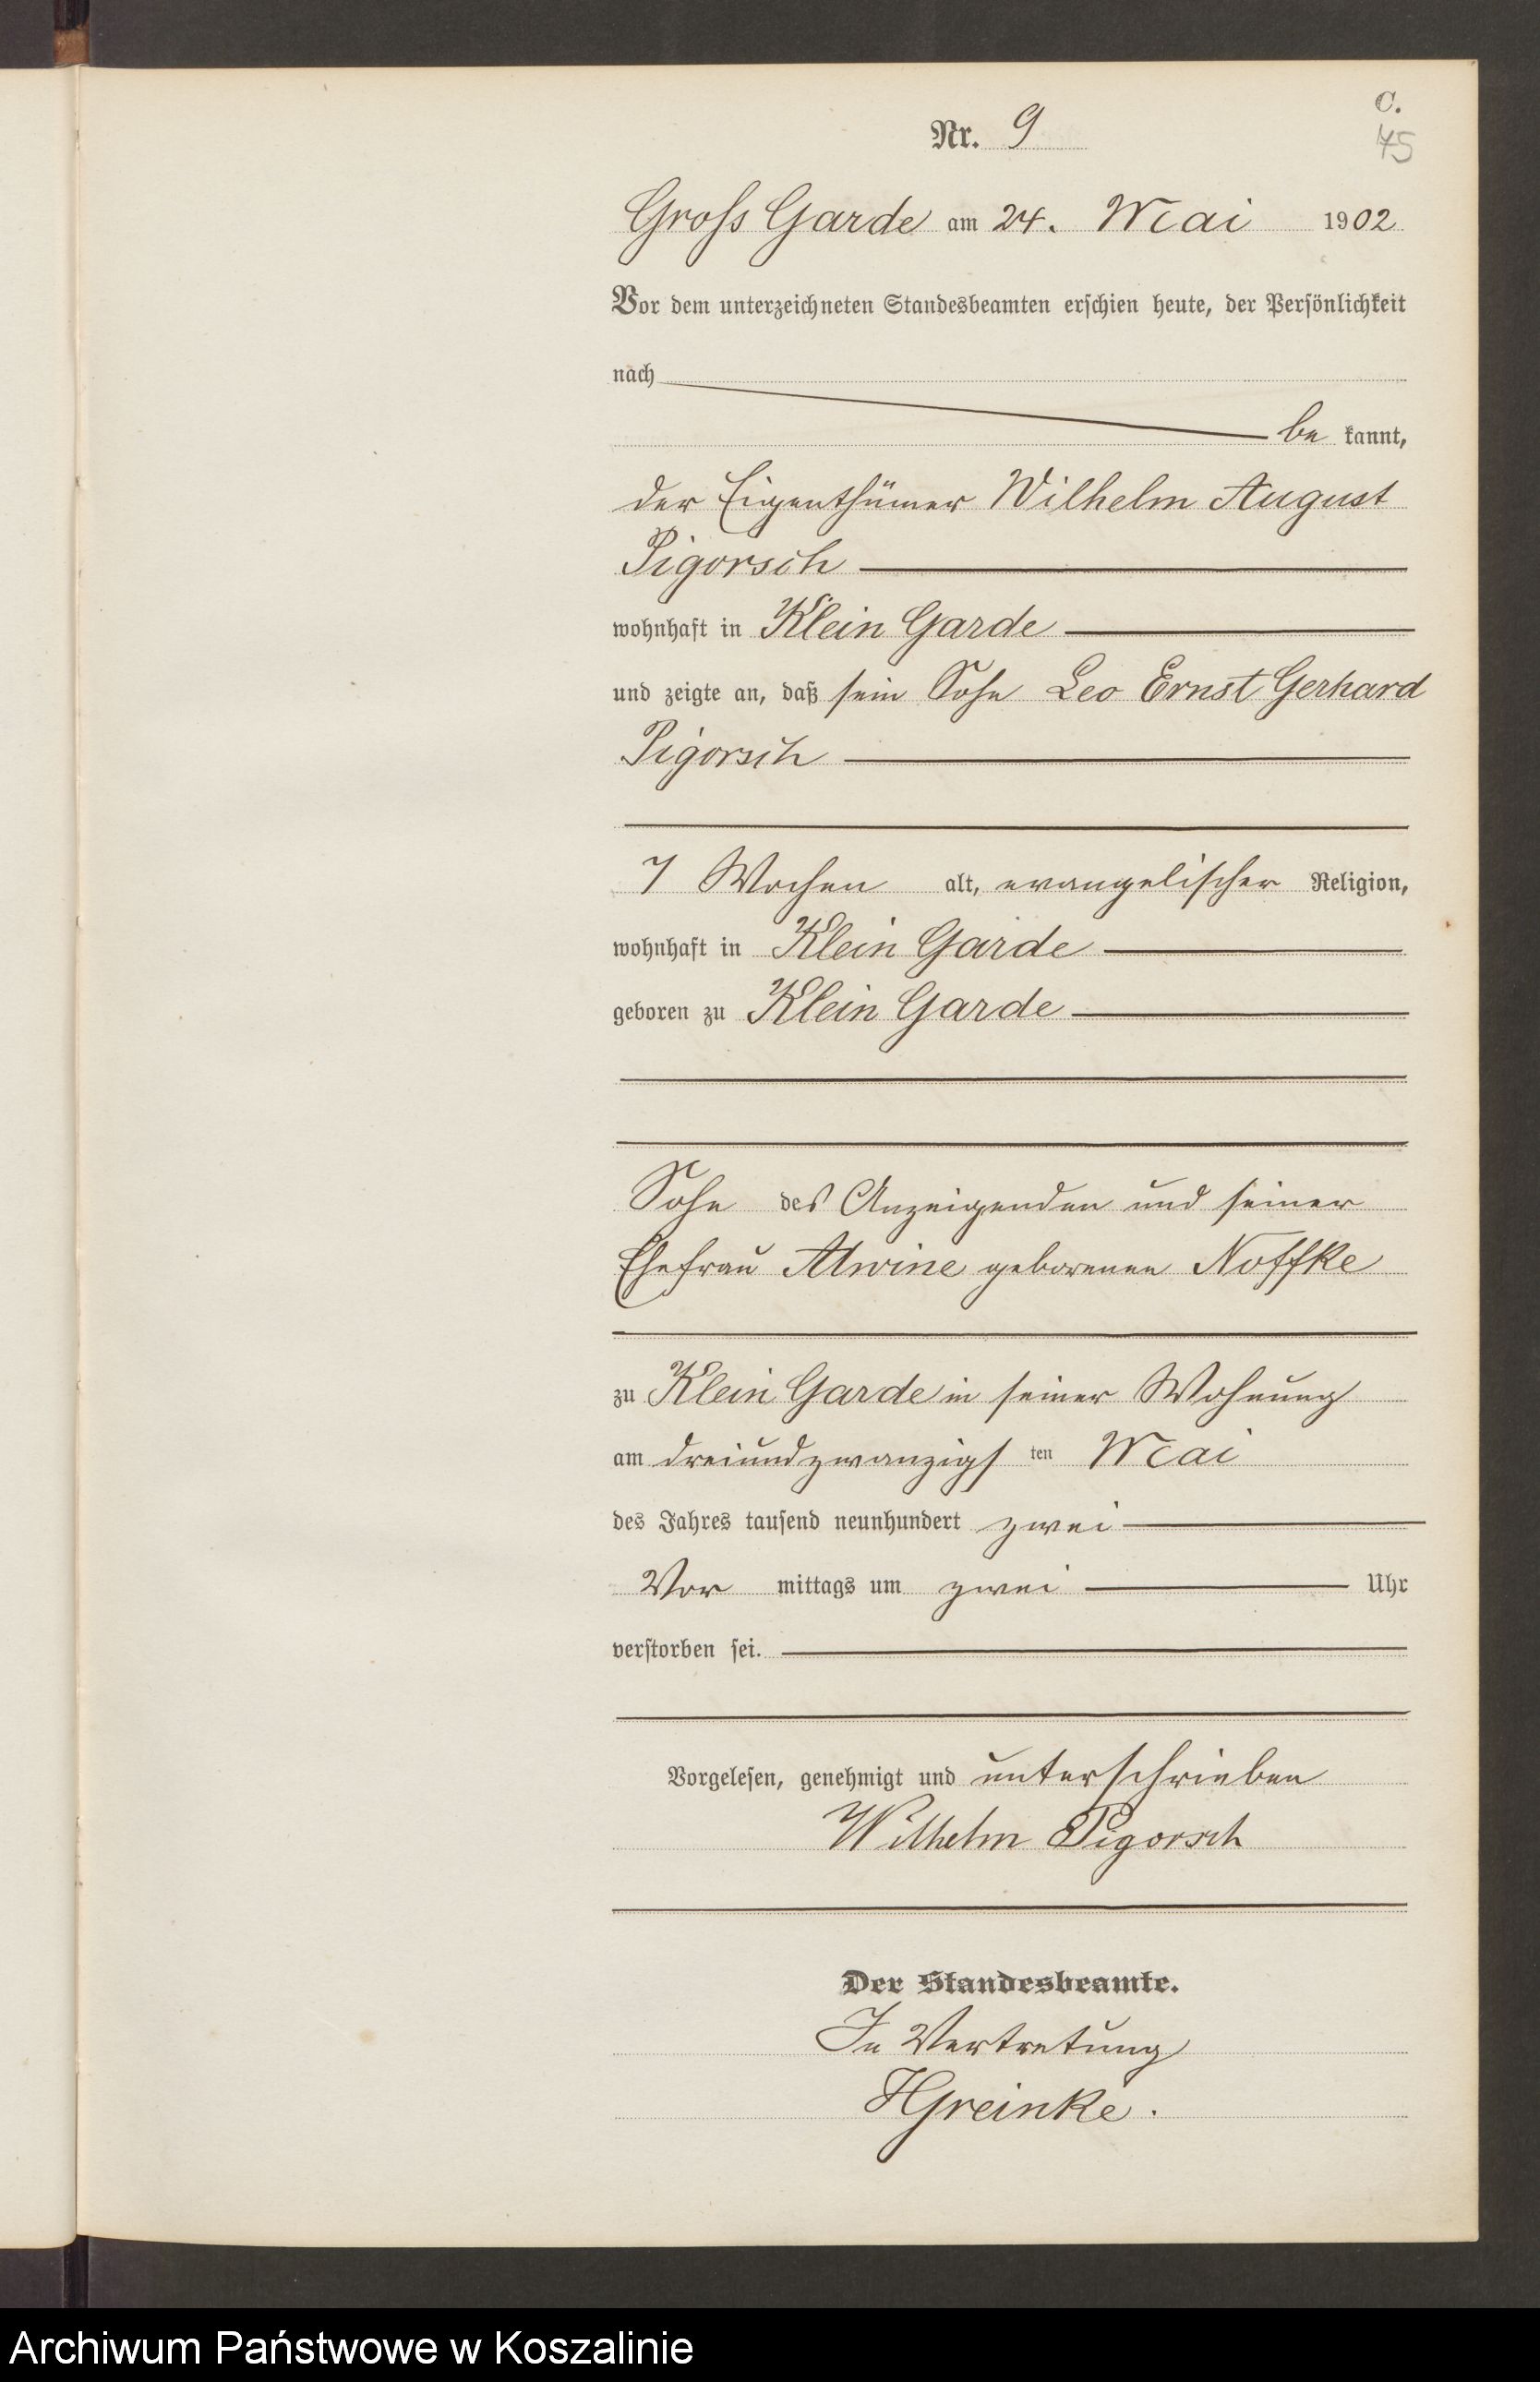 C.
Nr. 9
45
Gross Garde am 24. Mai 1902
Vor dem unterzeichneten Standesbeamten erschien heute, der Persönlichkeit
nach
be kannt,
der Eigenthümer Wilhelm August
Pigorsch
wohnhaft in Klein Garde
und zeigte an, daß sein Sohn Leo Ernst Gerhard
Pigorsch
7 Wochen alt, evangelischer Religion,
wohnhaft in Klein Garde
geboren zu Klein Garde
Sohn des Anzeigenden und seiner
Ehefrau Alwine geborenen Noffke
zu Klein Garde in seiner Wohnung
am dreiundzwanzigs ten Mai
des Jahres tausend neunhundert zwei
Vor mittags um zwei Uhr
verstorben sei.
Vorgelesen, genehmigt und unterschrieben
Wilhelm Pigorsch
Der Standesbeamte.
In Vertretung
HGreinke.
Archiwum Państwowe w Koszalinie